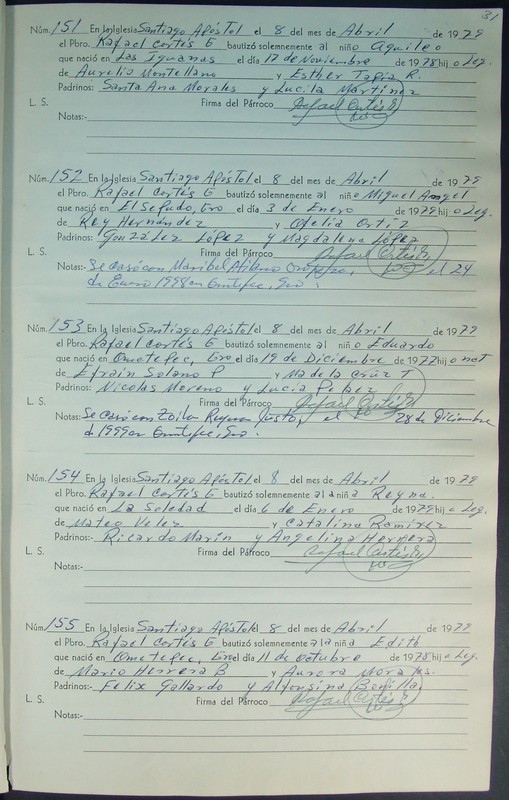 31
Núm. 151 En la Iglesia Santiago Apóstol el 8 del mes de Abril de 1979
el Pbro. Rafael Cortés E bautizó solemnemente al niño Aquileo
que nació en Las Iguanas el día 17 de Noviembre de 1978 hijo Leg.
de Aurelio Montellano y Esther Tapia R.
Padrinos: Santa Ana Morales y Lucila Martínez
L. S. Firma del Párroco Rafael Cortés E
Notas:-
Núm. 152 En la Iglesia Santiago Apóstol el 8 del mes de Abril de 1979
el Pbro. Rafael Cortés E bautizó solemnemente al niño Miguel Angel
que nació en El Sepudo, Gro el día 3 de Enero de 1979 hijo Leg.
de Rey Hernández y Ofelia Ortíz
Padrinos: González López y Magdalena López
L. S. Firma del Párroco Rafael Cortés E
Notas:- Se casó con Maribel el 24
de Enero 1998 en Ometepec, Gro.
Núm. 153 En la Iglesia Santiago Apóstol el 8 del mes de Abril de 1979
el Pbro. Rafael Cortés E bautizó solemnemente al niño Eduardo
que nació en Ometepec, Gro el día 19 de Diciembre de 1977 hijo nat
de Efraín Solano P y Ma de la Cruz T
Padrinos: Nicolas Moreno y Lucia
L. S. Firma del Párroco Rafael Cortés E
Notas: Se casó con Zoila Reyna Justo, el 28 de Diciembre
d 1999 en Ometepec, Gro.
Núm. 154 En la Iglesia Santiago Apóstol el 8 del mes de Abril de 1979
el Pbro. Rafael Cortés E bautizó solemnemente a la niña Reyna.
que nació en La Soledad el día 6 de Enero de 1979 hija Leg.
de Mateo Velez y Catalina Ramírez
Padrinos:- Ricardo Marín y Angelina Herrera
L. S. Firma del Párroco Rafael Cortés E
Notas:-
Núm. 155 En la Iglesia Santiago Apóstol el 8 del mes de Abril de 1979
el Pbro. Rafael Cortés E bautizó solemnemente a la niña Edith
que nació en Ometepec, Gro el día 11 de Octubre de 1978 hija Leg.
de Mario Herrera B y Aurora Morales.
Padrinos:- Felix Gallardo y Alfonsina Bonilla
L. S. Firma del Párroco Rafael Cortés E
Notas:-